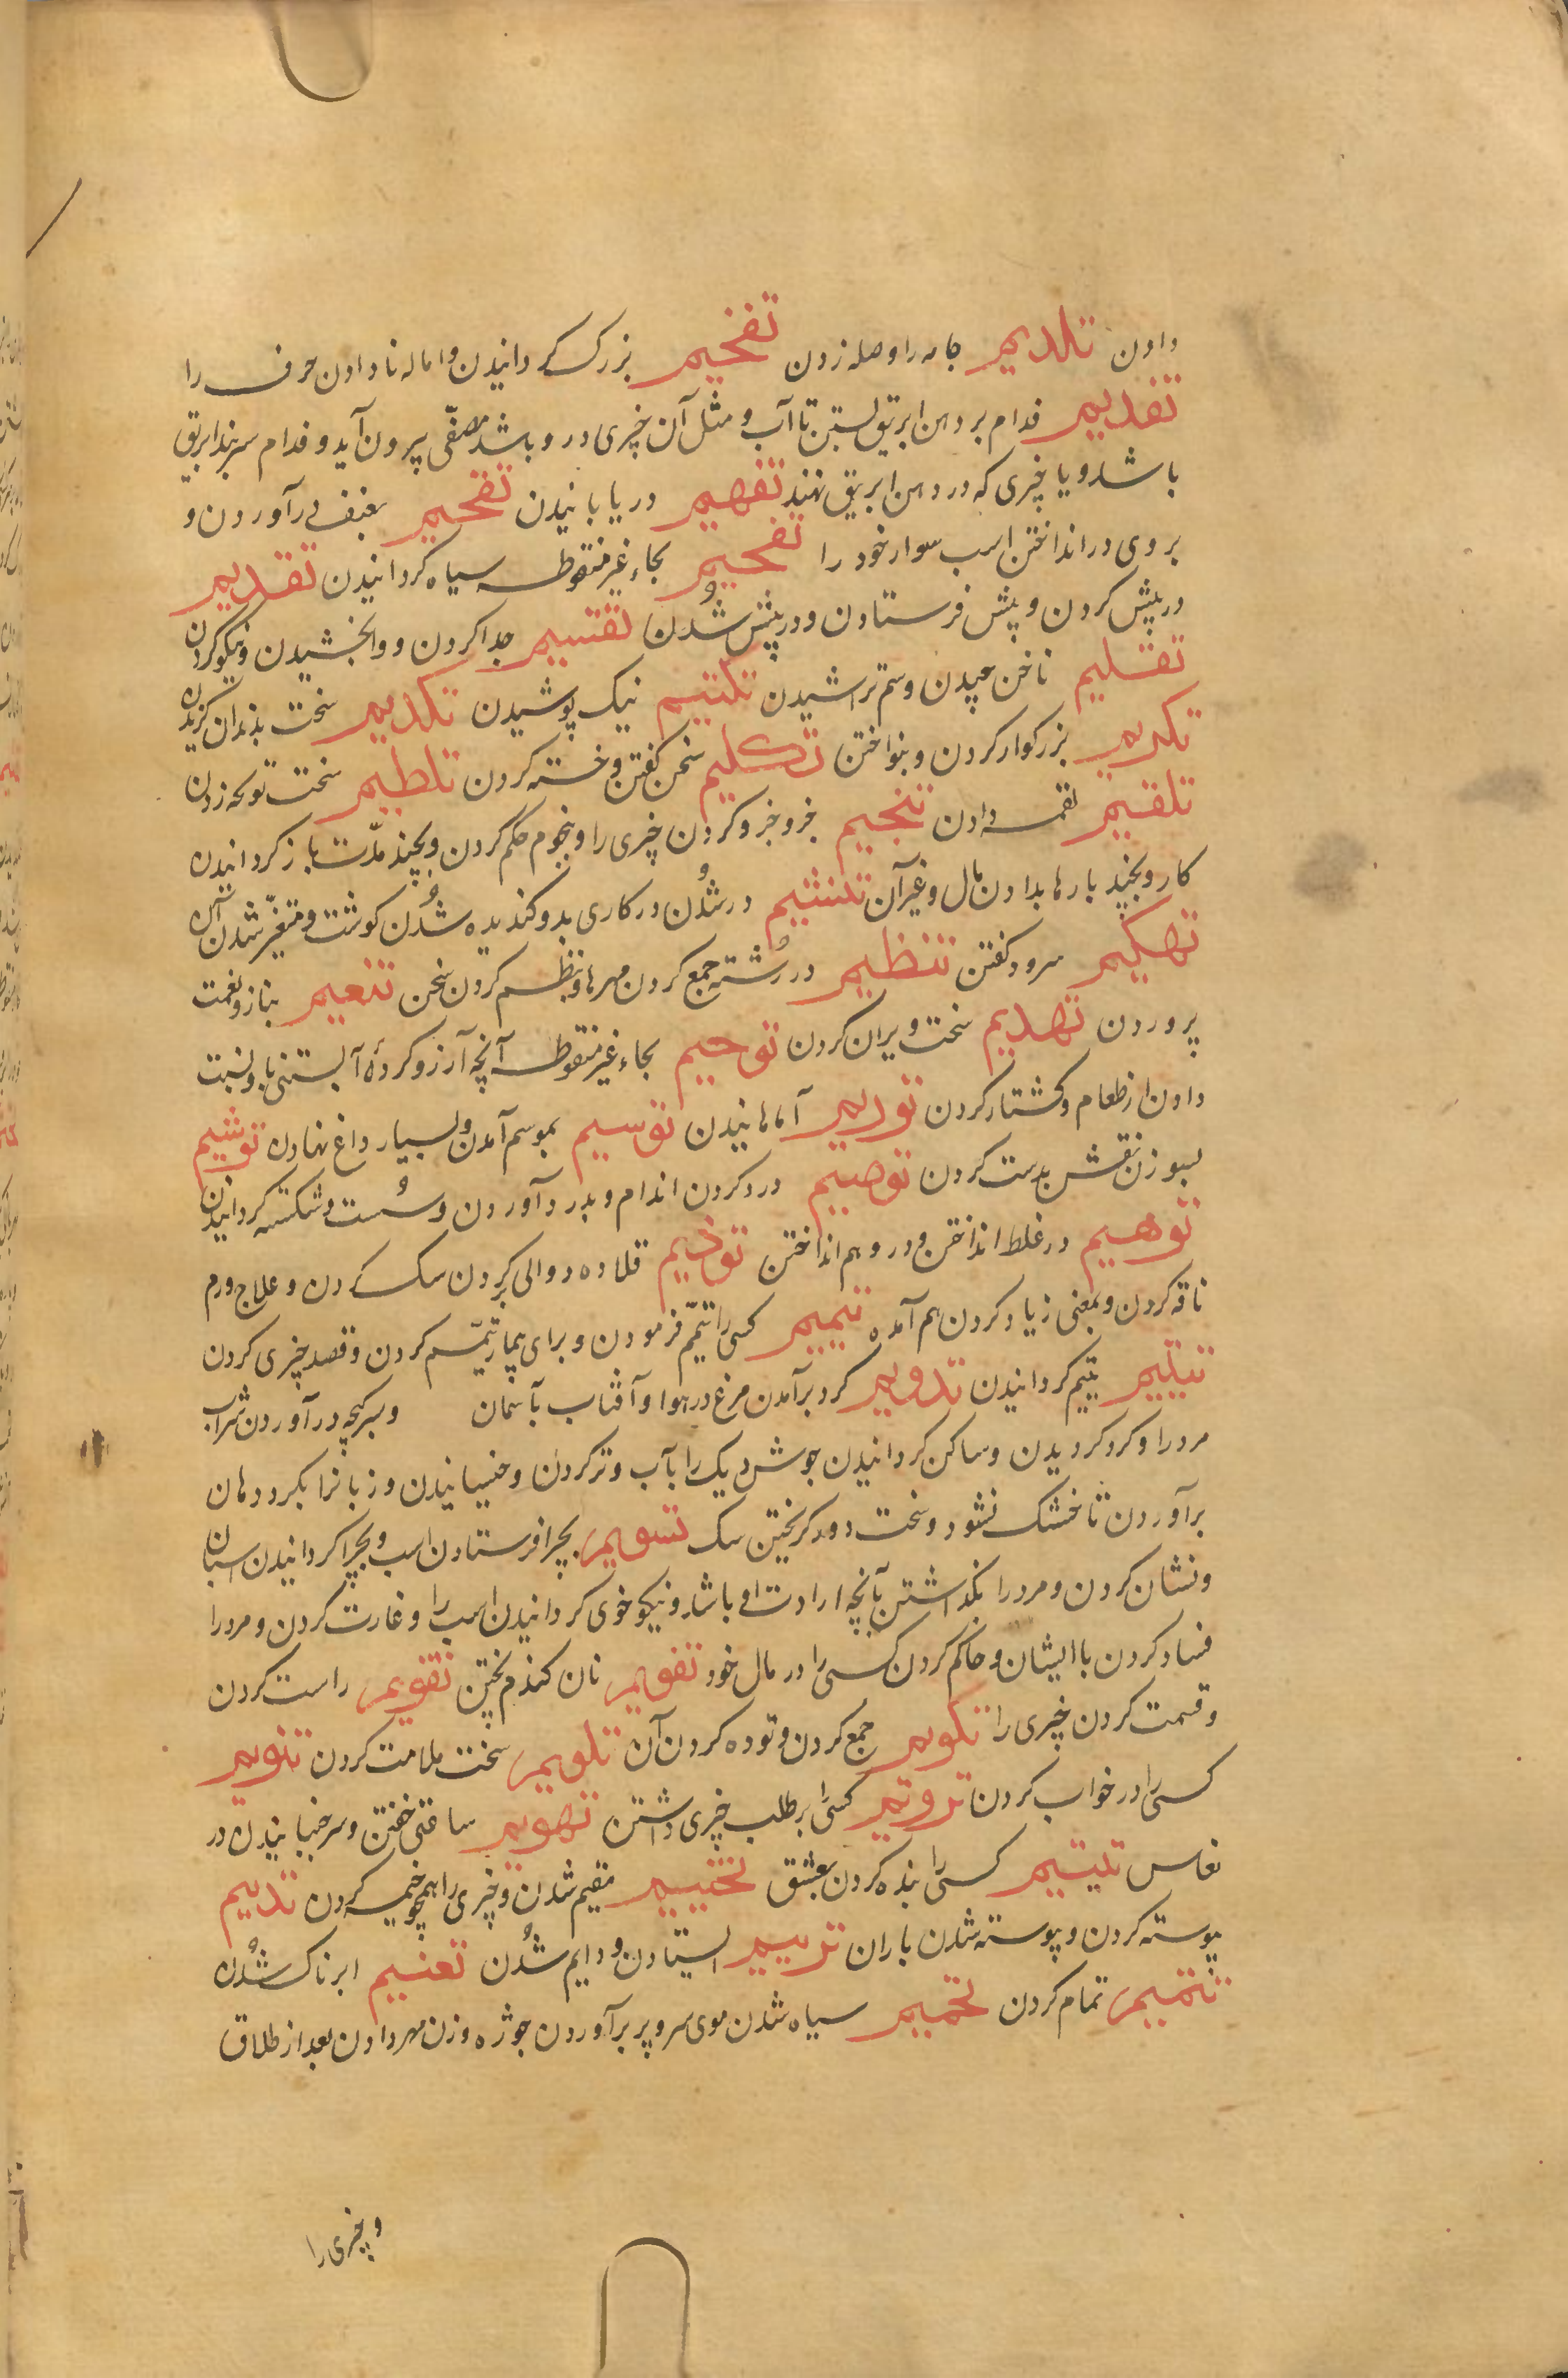 دادن تلدیم جامه را وصله زدن تفخیم بزرک کردانیدن و اماله نا دادن حرف را
تفدیم فدام بر دهن ابریق بستن تا آب و مثل آن چیزی درو باشد مصفّی بیرون آید و فدام سربند ابریق
باشد و یا چیزی که در دهن ابریق نهند تفهیم دریابانیدن تقحیم بعنف درآوردن و
بروی در انداختن اسب سوار خود را تفحیم بحاء غیر منقوطه سیاه کردانیدن تقدیم
در پیش کردن و پیش فرستادن و در پیش شُدن تقسیم جدا کردن و وابخشیدن و نیکو کردن
تقلیم ناخن چیدن و سّم تراشیدن تکتیم نیک پوشیدن تکدیم سخت بدندان کزیدن
تکریم بزرکوار کردن و بنواختن تکلیم سخن کفتن و خسته کردن تلطیم سخت توکچه زدن
تلقیم لقمه دادن تنجیم جزو جزو کردن چیزی را و بنجوم حکم کردن و بچند مدّت باز کردانیدن
کار و بچند بارها بدادن مال و غیر آن تنشیم در شُدن در کاری بد و کندیده شُدن کوشت و متغیّر شدن آن
تهکیم سرود کفتن تنظیم در رُشته جمع کردن مهرها و بنظم کردن سخن تنعیم بناز و نعمت
پروردن تهدیم سخت ویران کردن توحیم بحاء غیر منقوطه آنچه آرزو کردهٔ آبستنی باو نسبت
دادن از طعام و کشتار کردن توریم آماهانیدن توسیم بموسم آمدن و بسیار داغ نهادن توشیم
بسوزن نقش بدست کردن توصیم درد کردن اندام و بدرد آوردن و سُست و شکسته کردانیدن
توهیم در غلط انداختن و در وهم انداختن توذیم قلاده دوالی کردن سک کردن و علاج ورم
ناقه کردن و بمعنی زیاد کردن هم آمده تیمیم کسی را تیمّم فرمودن و برای بیمار تیمّم کردن و قصد چیزی کردن
تیتیم یتیم کردانیدن تدویم کرد برآمدن مرغ در هوا و آفتاب بآسمان و بسرکیجه درآوردن شراب
مرد را و کرد کردیدن و ساکن کردانیدن جوش دیک را بآب و تر کردن و خیسانیدن و زبانرا بکرد دهان
برآوردن تا خشک نشود و سخت دور کریختن سک تسویم بچرا فرستادن اسب و بچرا کردانیدن اسبان
و نشان کردن و مرد را بکذاشتن بآنچه ارادت او باشد و نیکو خوی کردانیدن اسب را و غارت کردن و مرد را
فساد کردن با ایشان و حاکم کردن کسی را در مال خود تفویم نان کندم پختن تقویم راست کردن
و قسمت کردن چیزی را تکویم جمع کردن و توده کردن آن تلویم سخت ملامت کردن تنویم
کسی را در خواب کردن ترویم کسی را بر طلب چیزی داشتن تهویم ساعتی خفتن و سر جنبانیدن در
نعاس تتییم کسی را بنده کردن بعشق تخییم مقیم شدن و چیزی را همچو خیمه کردن تدییم
پیوسته کردن و پیوسته شدن باران تریییم ایستادن و دایم شُدن تغییم ابرناک شُدن
تتمیم تمام کردن تحمیم سیاه شدن موی سر و پر برآوردن جوژه و زن مهر دادن بعد از طلاق
و چیزی را